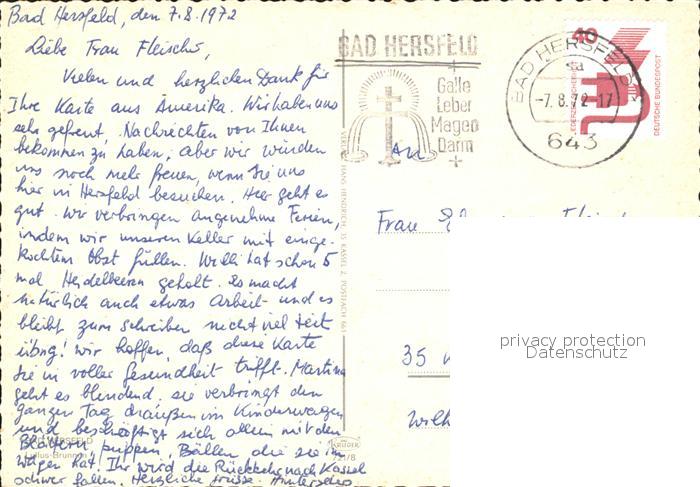 Bad Hersfeld, den 7.8.1972
Liebe Frau Fleischer,
Vielen und herzlichen Dank für
Ihre Karte aus Amerika. Wir haben uns
sehr gefreut. Nachrichten von Ihnen
bekommen zu haben, aber wir würden
uns noch mehr freuen, wenn Sie uns
hier in Hersfeld besuchen. Hier geht es
gut. Wir verbringen angenehme Ferien,
indem wir unseren Keller mit einge-
kochtem Obst füllen. Willi hat schon 5
mal Heidelbeeren geholt. Es macht
natürlich auch etwas Arbeit und es
bleibt zum Schreiben nicht viel Zeit
übrig! Wir hoffen, daß diese Karte
Sie in voller Gesundheit trifft. Martina
geht es blendend. Sie verbringt den
ganzen Tag draußen im Kinderwagen
und beschäftigt sich allein mit den
Blättern, Puppen, Bällen die sie im
Wagen hat. Ihr wird die Rückkehr nach Kassel
schwer fallen. Herzliche Grüsse
HERSFELD
Lullus-Brunnen
VERLAG HANS HENRICH, 35 KASSEL 2, POSTFACH 661
KRÜGER
BAD HERSFELD
Galle
Leber
Magen
Darm
BAD HERSFELD 1
-7.8.72-17
643
40
DEUTSCHE BUNDESPOST
An
Frau
35
Wilh
privacy protection
Datenschutz